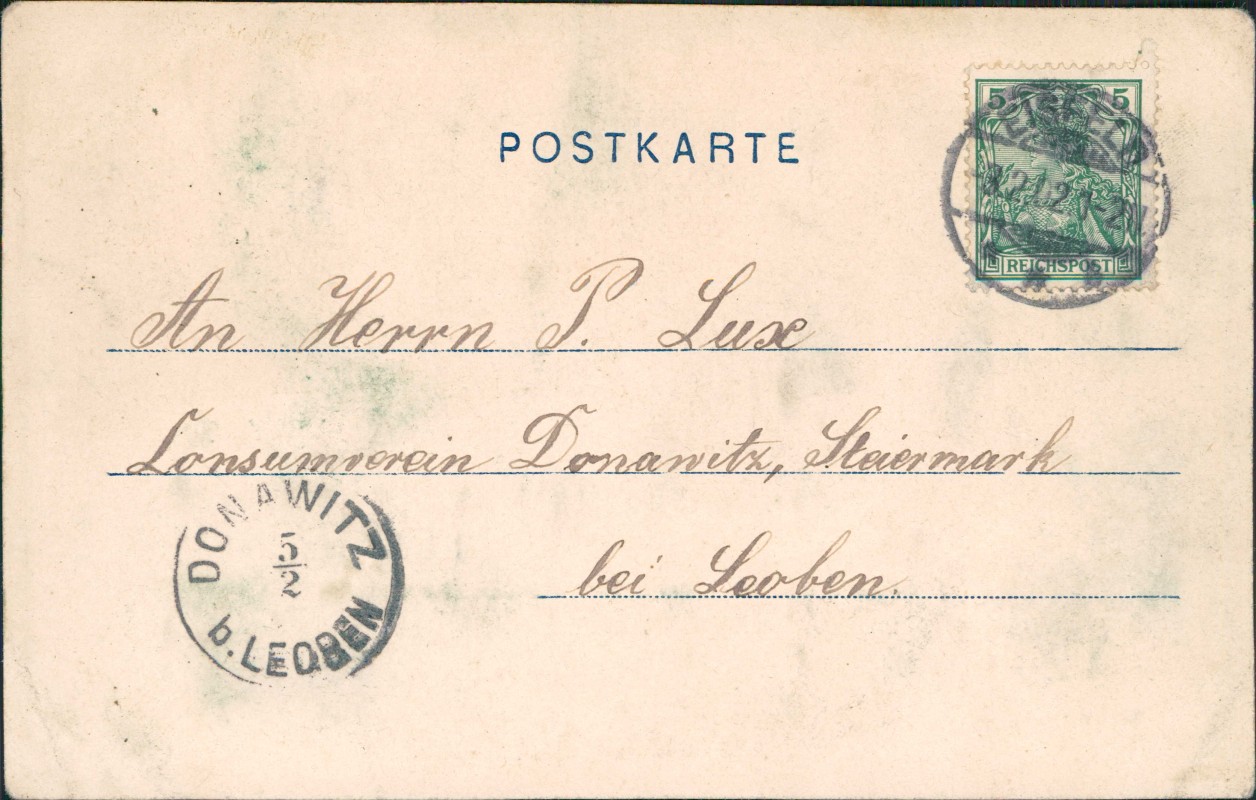 POSTKARTE
5 5
REICHSPOST
An Herrn P. Lux
Consumverein Donawitz, Steiermark
bei Leoben.
DONAWITZ
5/2
b. LEOBEN